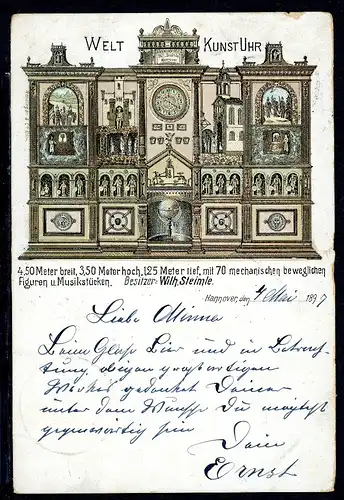 WELT KUNSTUHR
4,50 Meter breit, 3,50 Meter hoch, 1,25 Meter tief, mit 70 mechanischen beweglichen
Figuren u. Musikstücken. Besitzer: Wilh. Steimle.
Hannover, den 4/Mai 1897
Liebe Minna
Beim Glase Bier und in Betrach-
tung obigen großartigen
Werkes gedenket Deiner
unter dem Wunsche Du mögest
gegenwärtig sein
Dein
Ernst